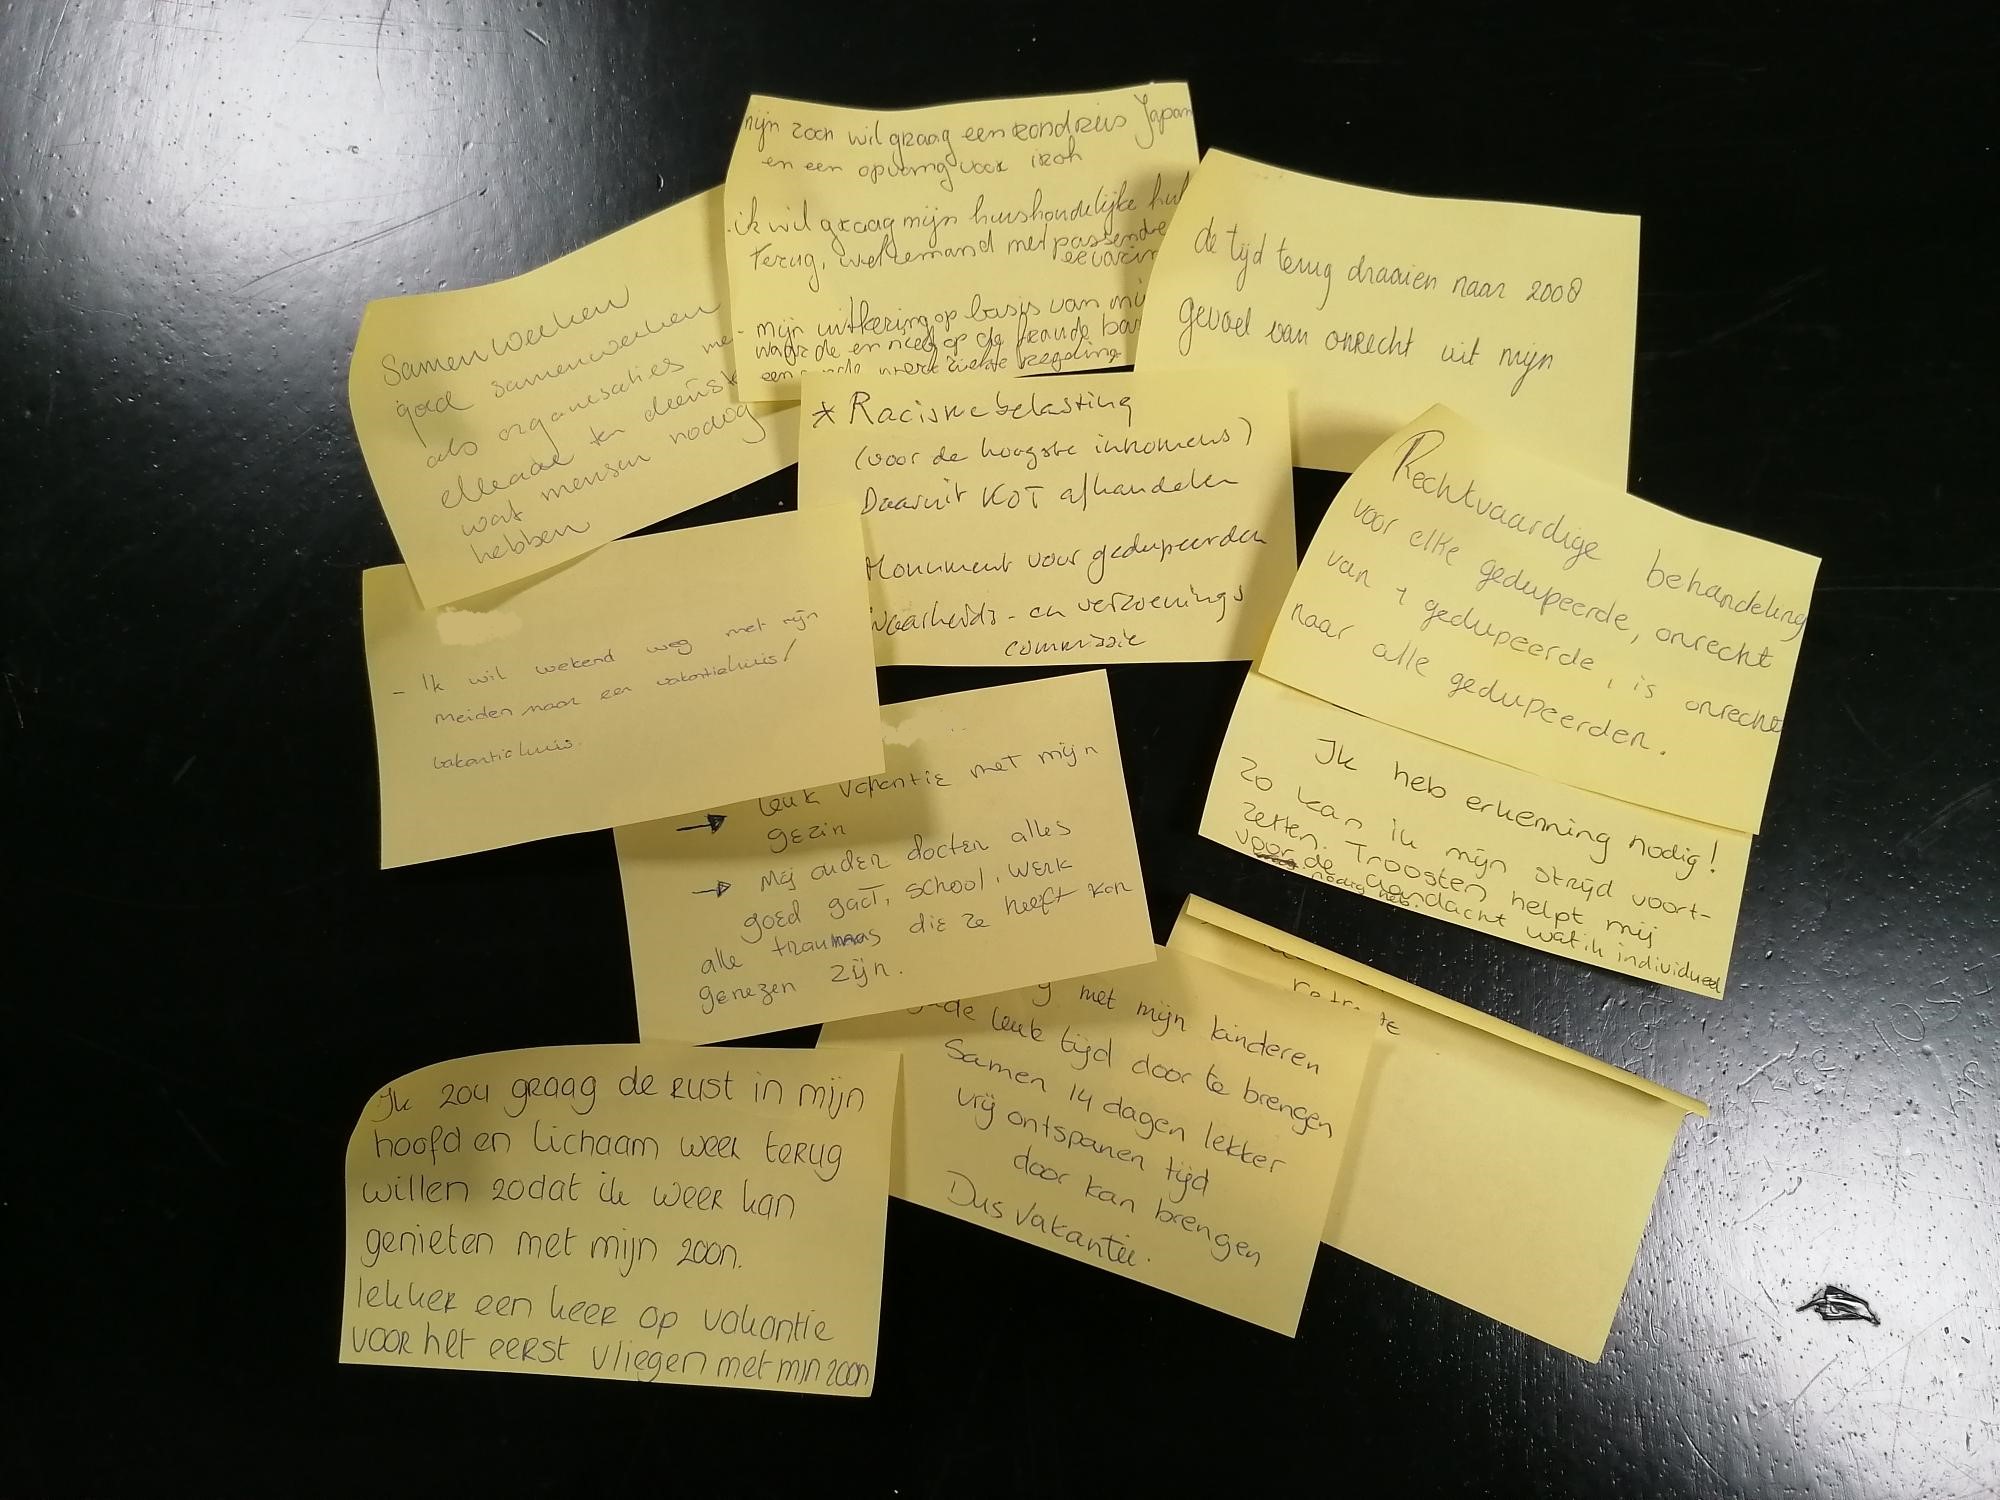 mijn zoon wil graag een rondreis Japan
en een opvang voor iroh
ik wil graag mijn huishoudelijke hul
terug, wel iemand met passende
ervarin
- mijn uitkering op basis van mi
waarde en niet op de fraude
een regeling
de tijd terug draaien naar 2008
gevoel van onrecht uit mijn
Samenwerken
goed samenwerken
als organisaties me
elkaar ten dienste
wat mensen nodig
hebben
* Racismebelasting
(voor de hoogste inkomens)
Daaruit KOT afhandelen
Monument voor gedupeerden
Waarheids- en verzoenings
commissie
Rechtvaardige behandeling
voor elke gedupeerde, onrecht
van 1 gedupeerde, is onrecht
naar alle gedupeerden.
- Ik wil wekend weg met mijn
meiden naar een vakantiehuis!
vakantiehuis.
Ik heb erkenning nodig!
Zo kan ik mijn strijd voort-
zetten. Troosten helpt mij
voor de aandacht wat ik individueel
nodig heb.
→ leuk vakantie met mijn
gezin
→ Mij ouder docter alles
goed gaat, school, werk
alle traumaas die ze heeft kan
genezen zijn.
met mijn kinderen
leuk tijd door te brengen
Samen 14 dagen lekker
vrij ontspanen tijd
door kan brengen
Dus vakantie.
Ik zou graag de rust in mijn
hoofd en lichaam weer terug
willen zodat ik weer kan
genieten met mijn zoon.
lekker een keer op vakantie
voor het eerst vliegen met mijn zoon